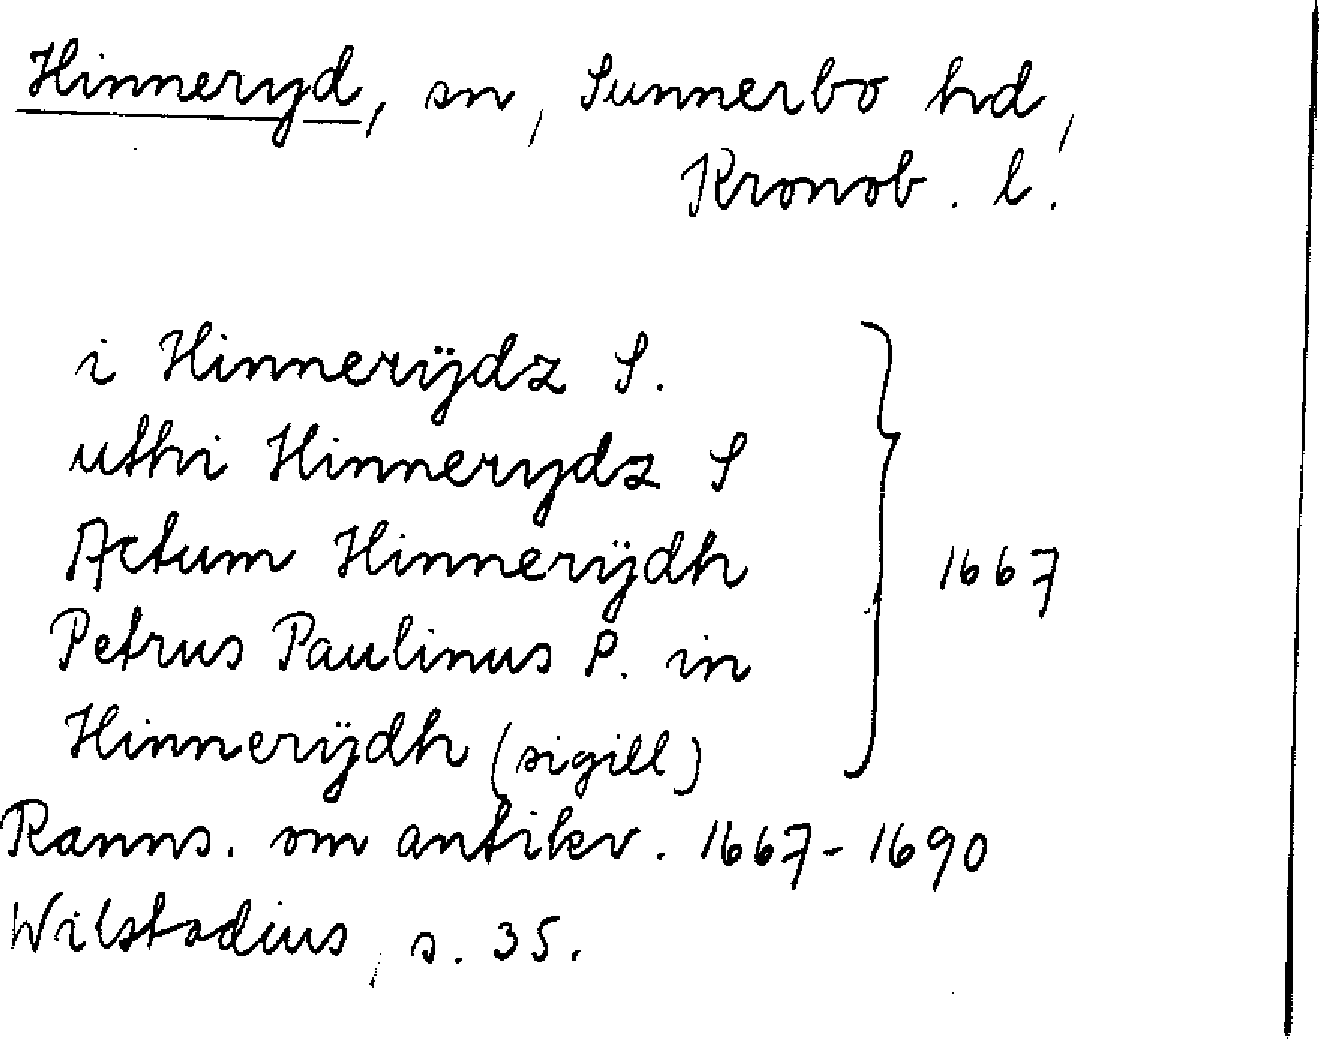 Hinneryd, sn, Sunnerbo hd,
Kronob. l.
i Hinnerÿdz S.
uthi Hinnerydz S
Actum Hinnerÿdh
Petrus Paulinus P. in
Hinnerÿdh (sigill)
1667
Ranns. om antikv. 1667-1690
Wilstadius, s. 35.